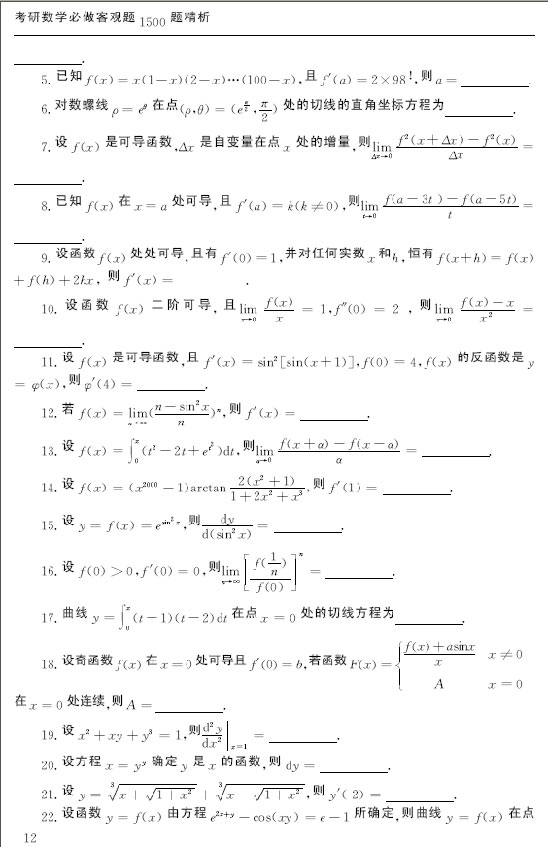 考研数学必做客观题1500题精析
________.
5. 已知 f(x) = x(1-x)(2-x)⋯(100-x), 且 f′(a) = 2×98!, 则 a = ________.
6. 对数螺线 ρ = e^θ 在点 (ρ,θ) = (e^{π/2}, π/2) 处的切线的直角坐标方程为________.
7. 设 f(x) 是可导函数, Δx 是自变量在点 x 处的增量, 则 lim_{Δx→0} (f²(x+Δx) - f²(x))/Δx =
________.
8. 已知 f(x) 在 x = a 处可导, 且 f′(a) = k(k ≠ 0), 则 lim_{t→0} (f(a-3t) - f(a-5t))/t =
________.
9. 设函数 f(x) 处处可导, 且有 f′(0) = 1, 并对任何实数 x 和 h, 恒有 f(x+h) = f(x)
+ f(h) + 2hx, 则 f′(x) = .
10. 设函数 f(x) 二阶可导, 且 lim_{x→0} f(x)/x = 1, f″(0) = 2 , 则 lim_{x→0} (f(x) - x)/x² =
________.
11. 设 f(x) 是可导函数, 且 f′(x) = sin²[sin(x+1)], f(0) = 4, f(x) 的反函数是 y
= φ(x), 则 φ′(4) = ________.
12. 若 f(x) = lim_{n→∞} ((n - sin²x)/n)^n, 则 f′(x) = ________.
13. 设 f(x) = ∫_0^x (t² - 2t + e^{t²})dt, 则 lim_{α→0} (f(x+α) - f(x-α))/α = ________.
14. 设 f(x) = (x^{2000} - 1)arctan 2(x²+1)/(1+2x²+x³), 则 f′(1) = ________.
15. 设 y = f(x) = e^{sin²x}, 则 dy/d(sin²x) = ________.
16. 设 f(0) > 0, f′(0) = 0, 则 lim_{n→∞} [f(1/n)/f(0)]^n = ________.
17. 曲线 y = ∫_0^x (t-1)(t-2)dt 在点 x = 0 处的切线方程为________.
18. 设奇函数 f(x) 在 x = 0 处可导且 f′(0) = b, 若函数 F(x) = { (f(x) + asinx)/x x ≠ 0 ; A x = 0
在 x = 0 处连续, 则 A = ________.
19. 设 x² + xy + y³ = 1, 则 d²y/dx² |_{x=1} = ________.
20. 设方程 x = y^y 确定 y 是 x 的函数, 则 dy = ________.
21. 设 y = ∛(x + √(1 + x²)) + ∛(x - √(1 + x²)), 则 y′(2) = ________.
22. 设函数 y = f(x) 由方程 e^{2x+y} - cos(xy) = e - 1 所确定, 则曲线 y = f(x) 在点
12